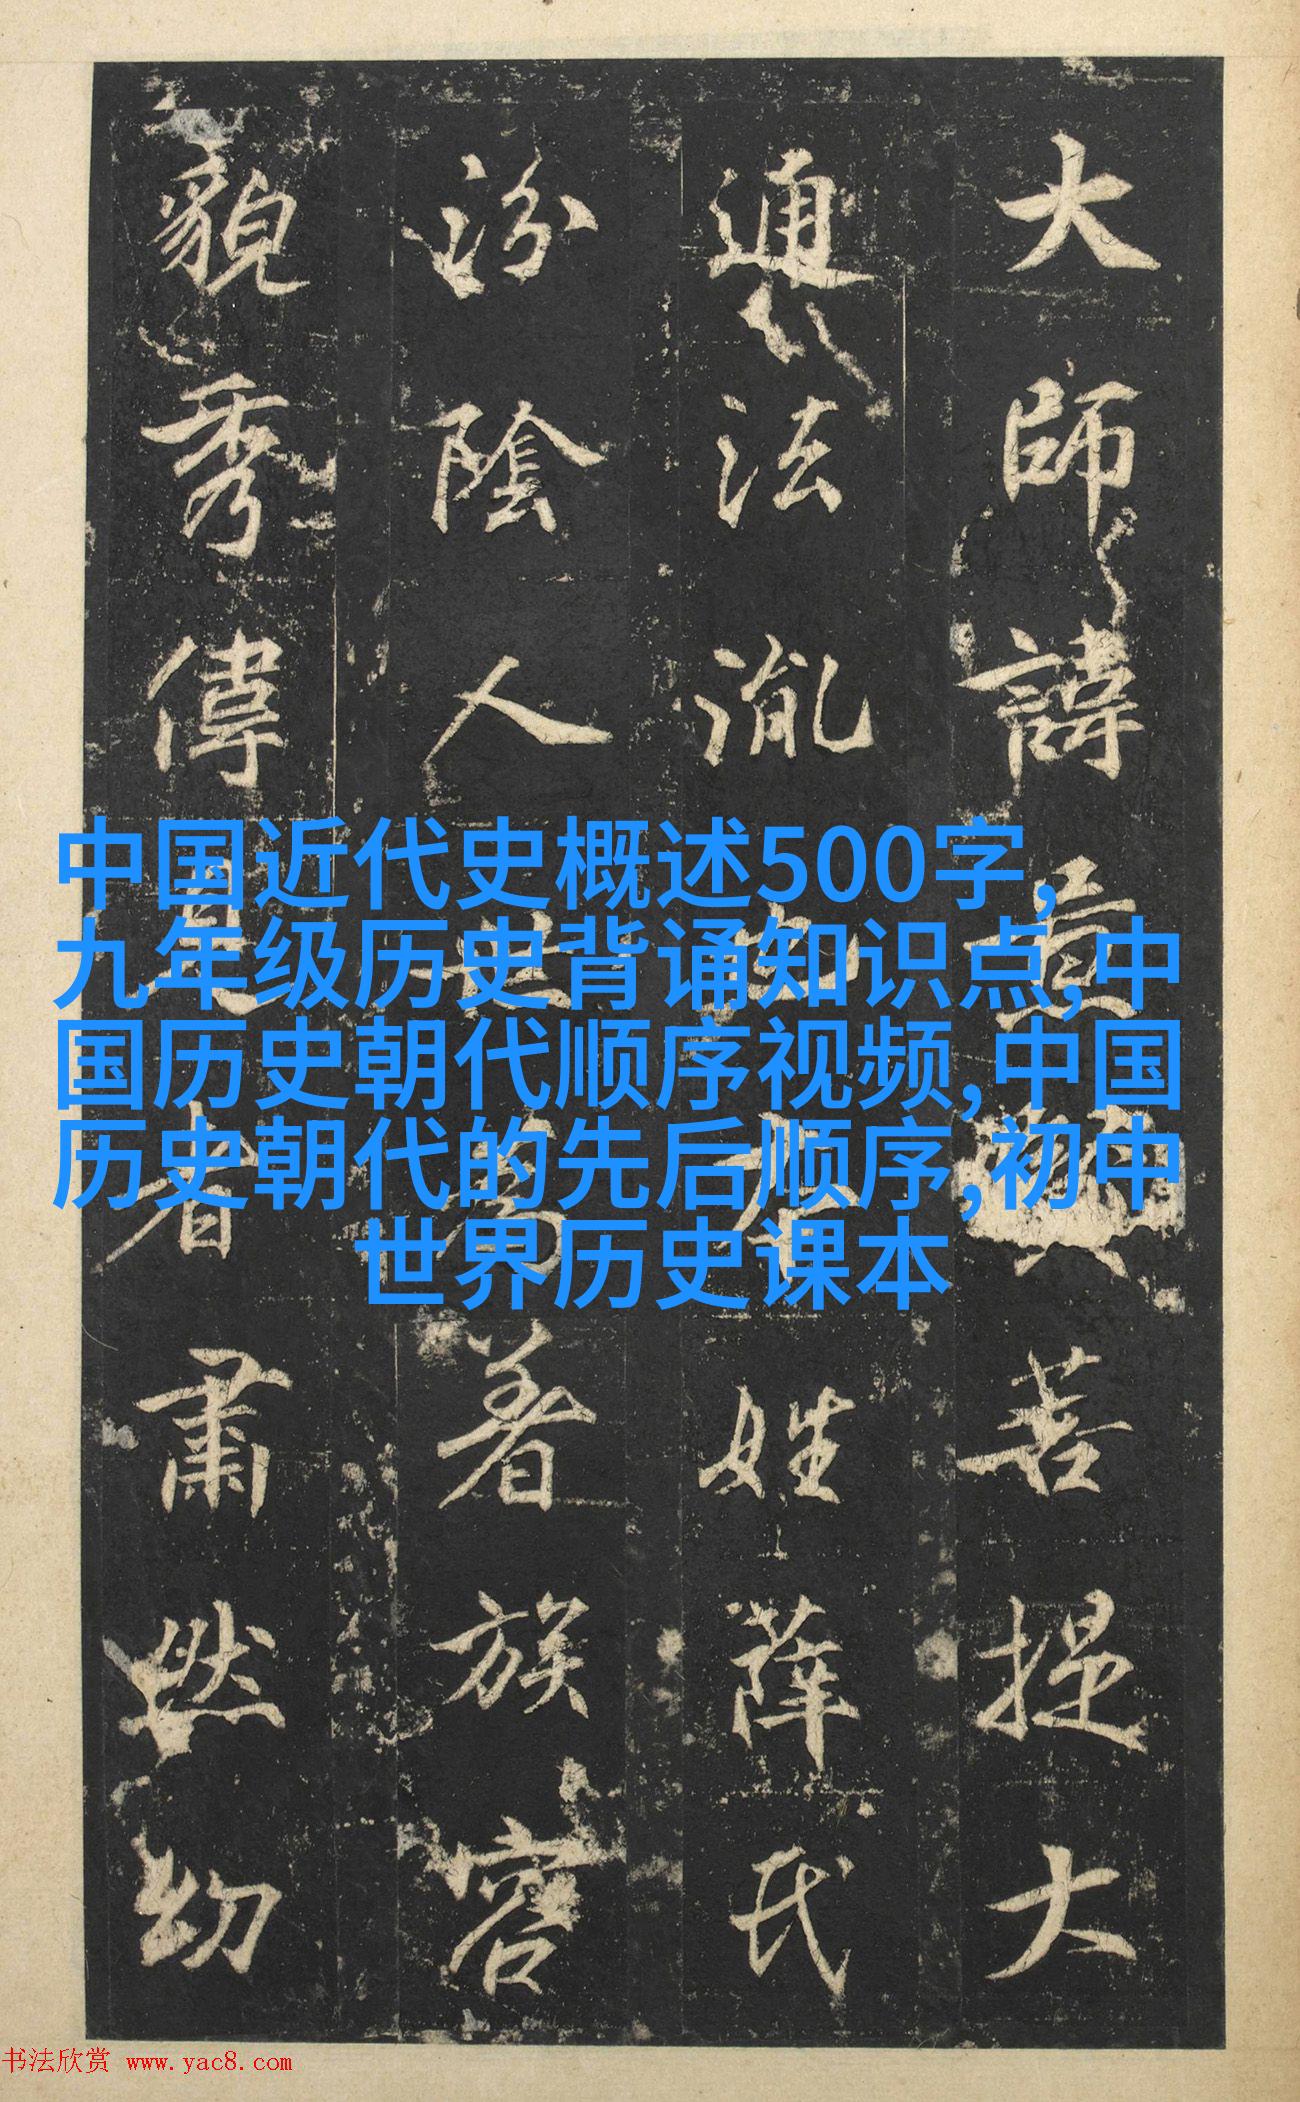 大師諱菩提大
通法胤也本姓薛氏
汾陰人世為著族容
貌秀偉見者肅然幼
中国近代史概述500字,
九年级历史背诵知识点,中
国历史朝代顺序视频,中国
历史朝代的先后顺序,初中
世界历史课本
书法欣赏 www.yac8.com